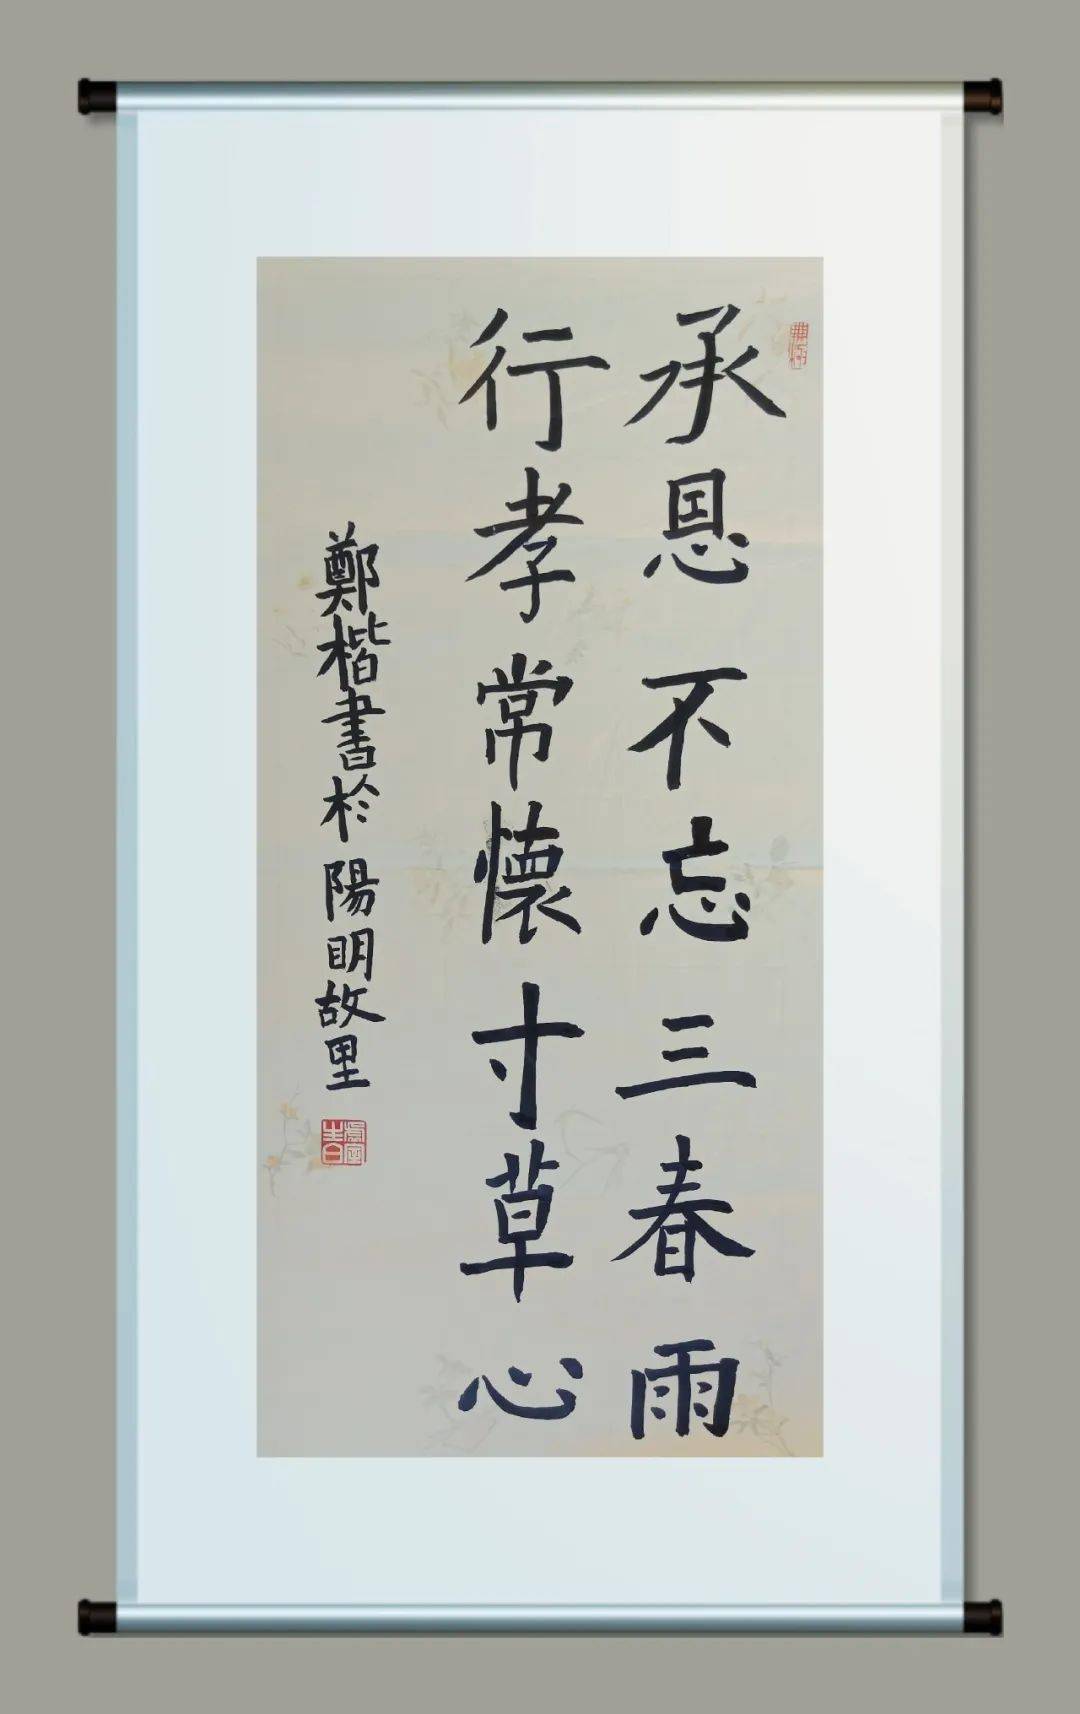 承恩不忘三春雨
行孝常懷寸草心
鄭楷書於陽明故里